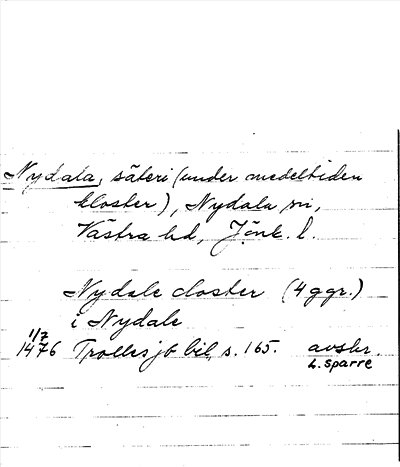 Nydala, säteri (under medeltiden
kloster), Nydala sn,
Västra hd, Jönk. l.
Nydale closter (4 ggr.)
i Nydale
1/7
1476 Trolles jb bil, s. 165. avskr.
L. Sparre